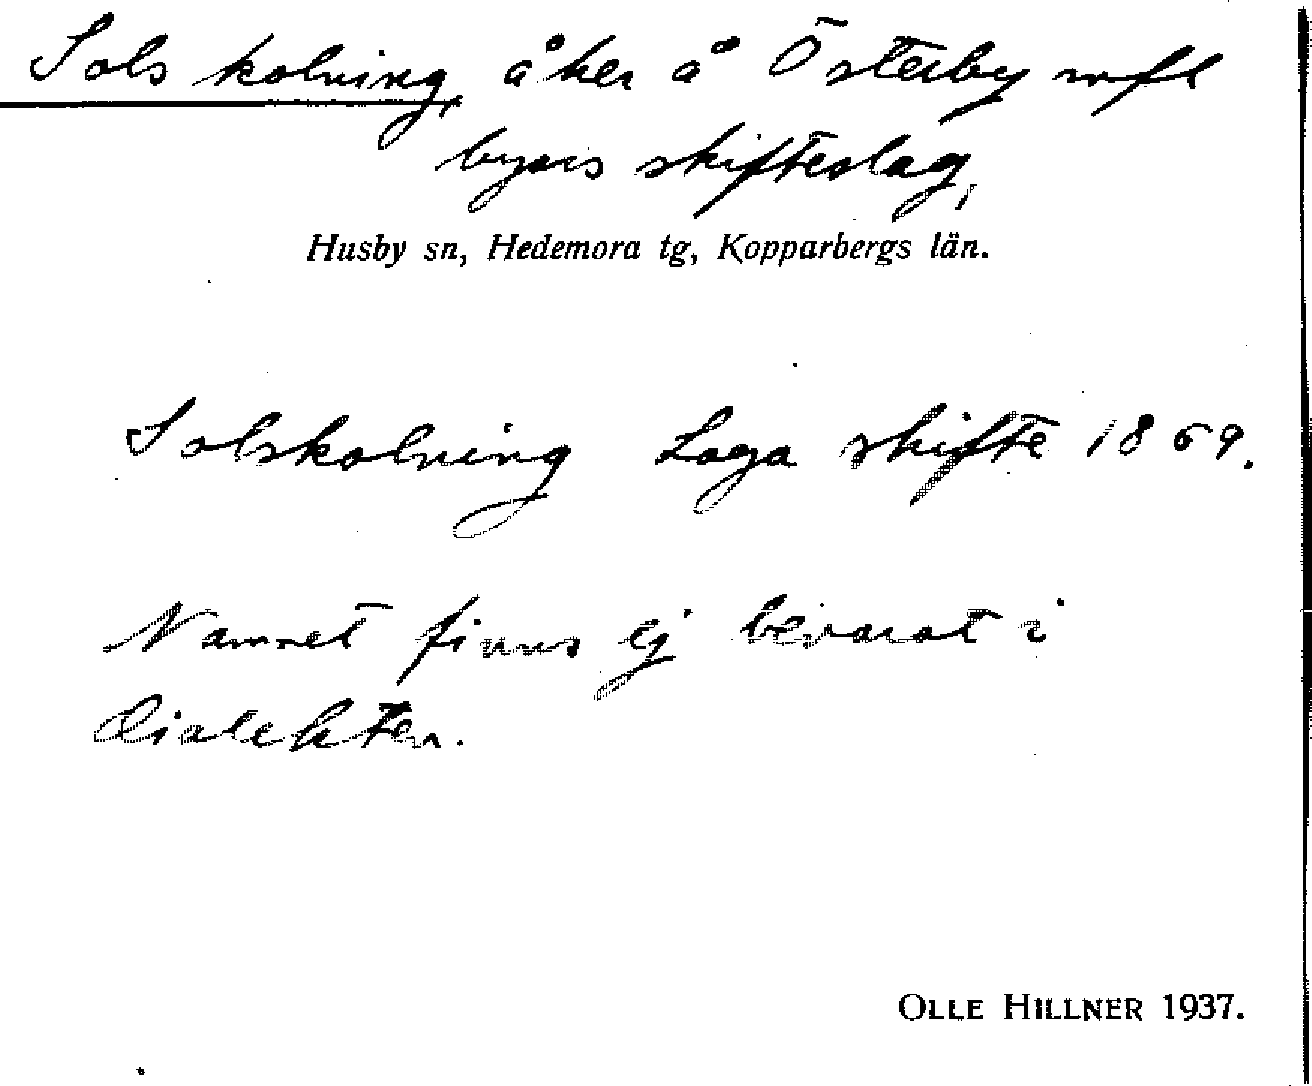 Solskolning, åker å Österby mfl
byars skifteslag,
Husby sn, Hedemora tg, Kopparbergs län.
Solskolning Laga skifte 1869.
Namnet finns ej bevarat i
dialekten.
OLLE HILLNER 1937.